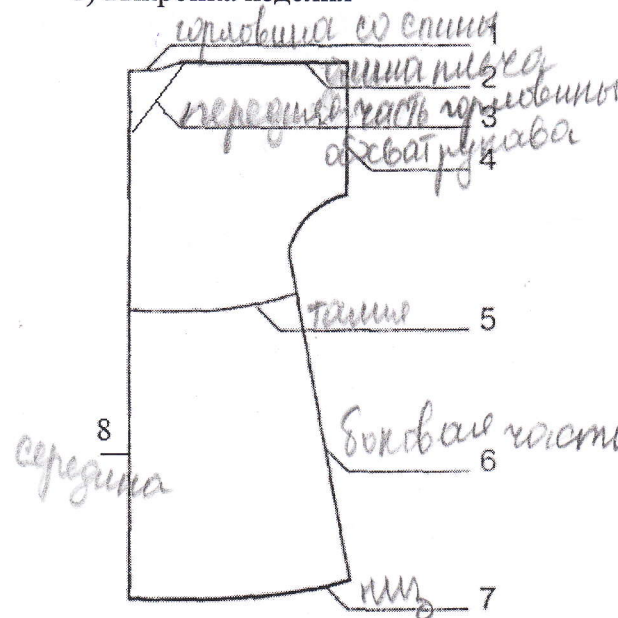 горловина со спины 1
длина плеча 2
передняя часть горловины 3
обхват рукава 4
талия 5
8
середина
боковая часть 6
низ 7